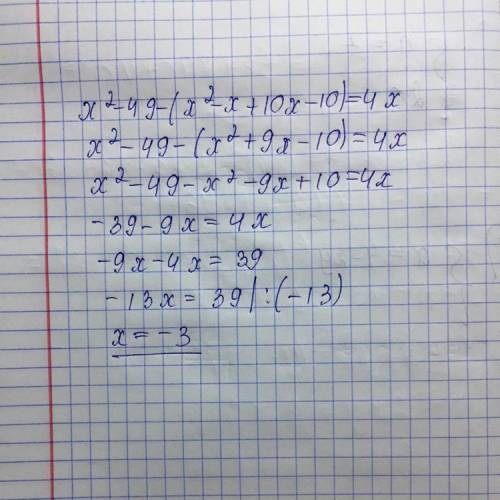 x²-49-(x²-x+10x-10)=4x
x²-49-(x²+9x-10)=4x
x²-49-x²-9x+10=4x
-39-9x=4x
-9x-4x=39
-13x=39|:(-13)
x=-3